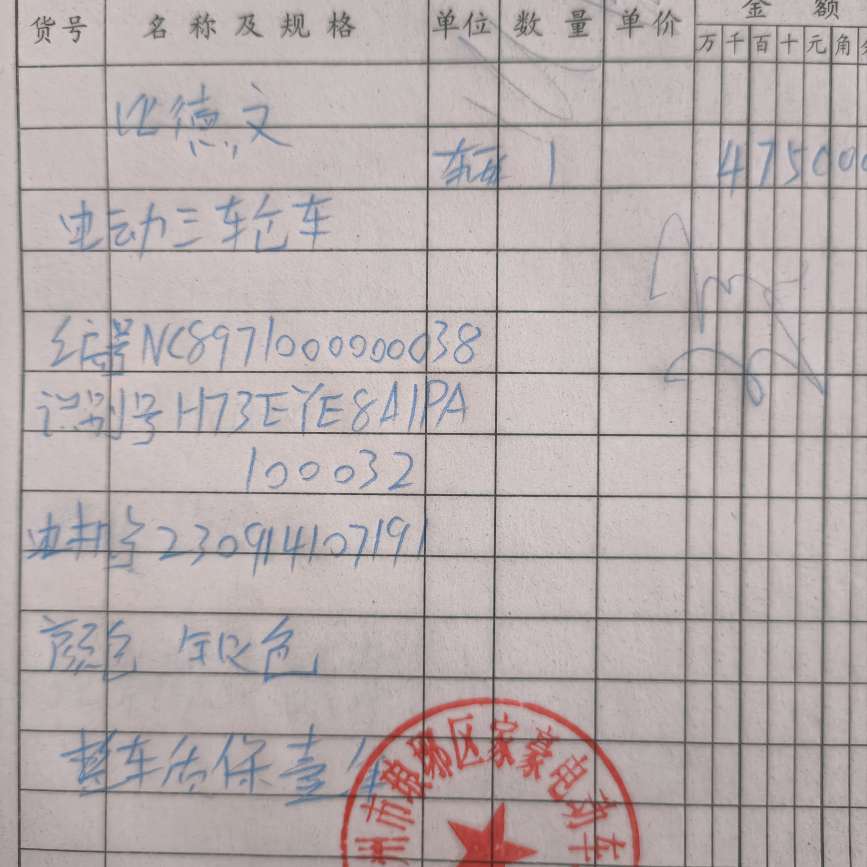 货号 名称及规格 单位 数量 单价 金额
万 千 百 十 元 角 分
比德文
车辆 1 475000
电动三轮仓车
编号NC8971000000038
识别号H73EYE8A1PA
100032
电机号230914107191
颜色 银色
整车质保壹年
州市琅琊区家豪电动车